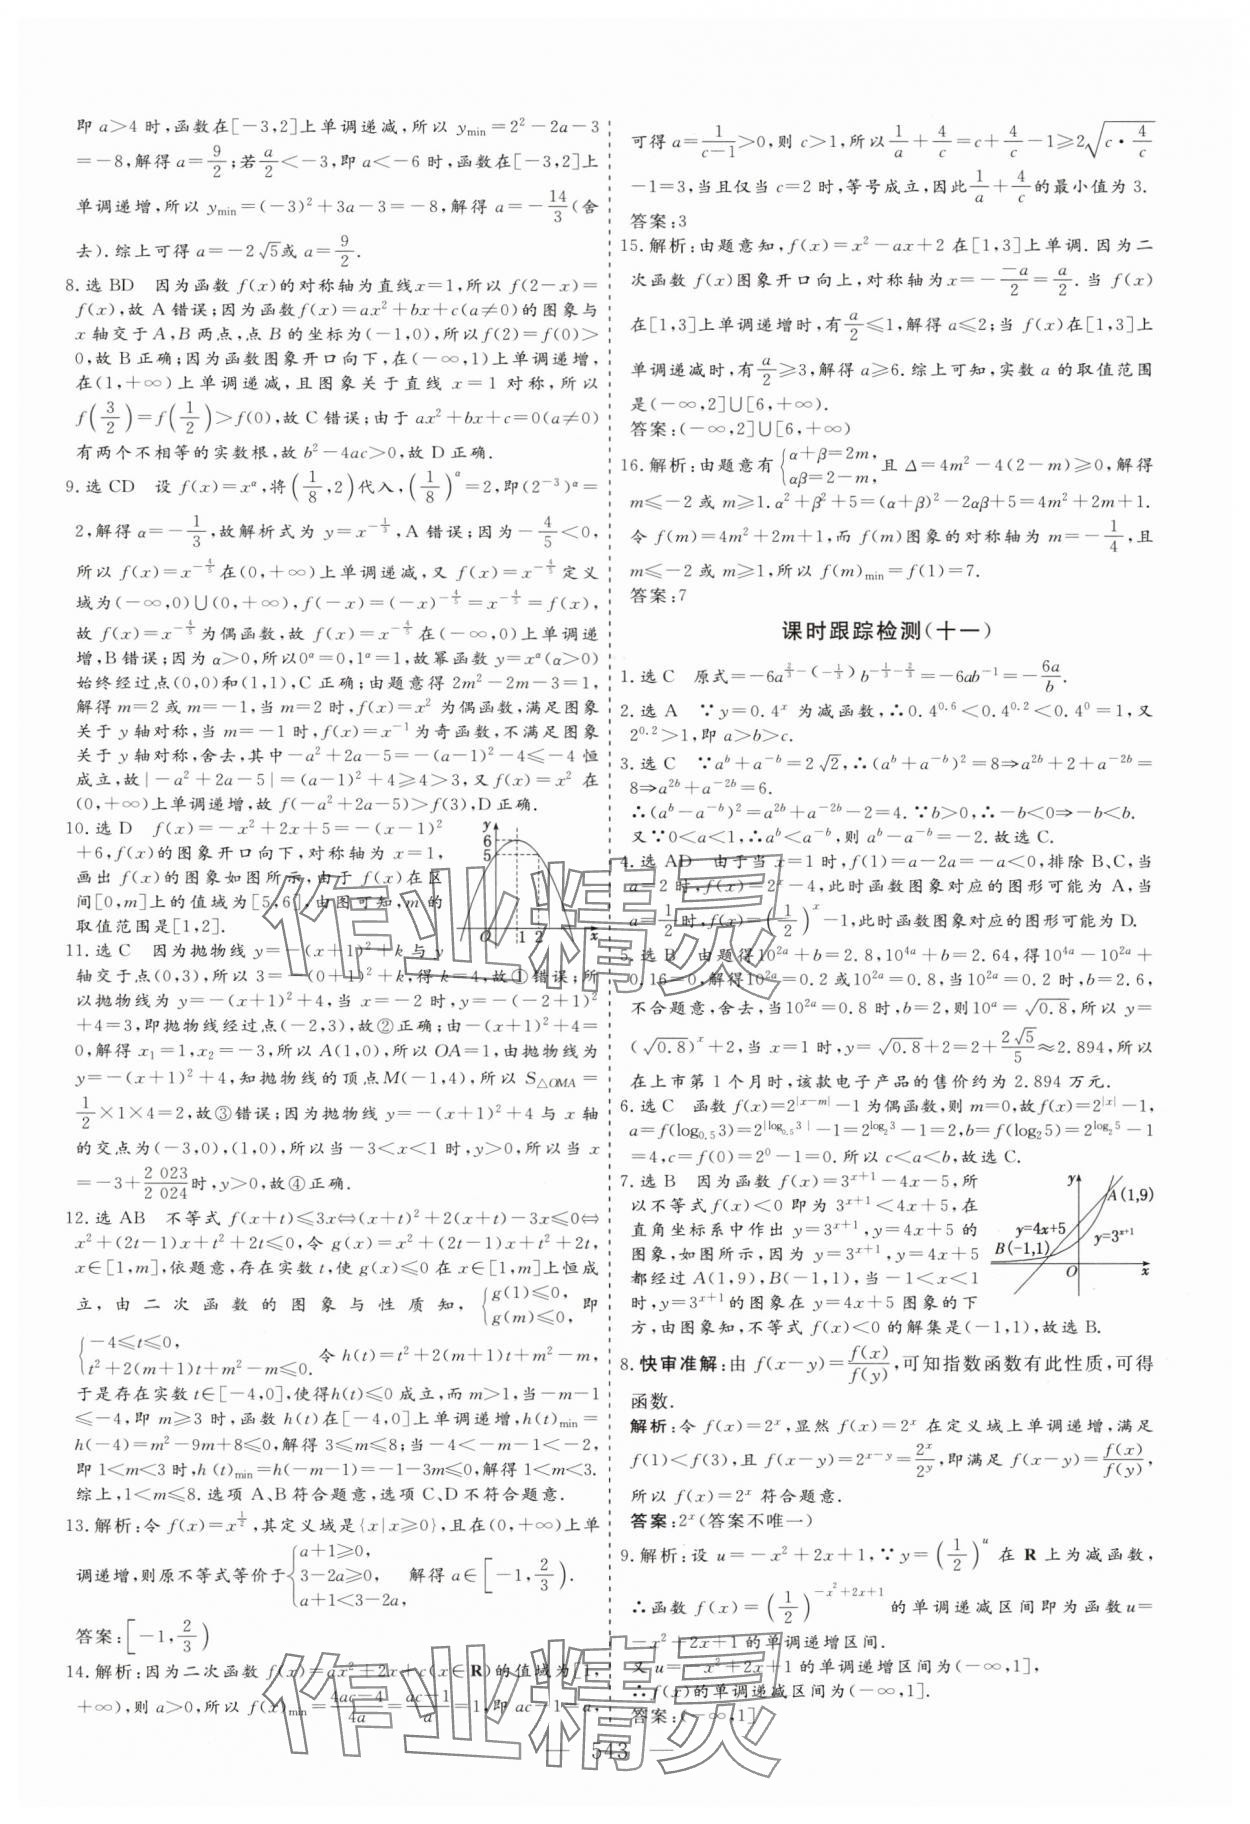 即 a>4 时,函数在[-3,2]上单调递减,所以 y_min=2²-2a-3
=-8,解得 a=9/2;若 a/2<-3,即 a<-6 时,函数在[-3,2]上
单调递增,所以 y_min=(-3)²+3a-3=-8,解得 a=-14/3(舍
去).综上可得 a=-2√5或 a=9/2.
8.选 BD 因为函数 f(x)的对称轴为直线x=1,所以 f(2-x)=
f(x),故 A 错误;因为函数f(x)=ax²+bx+c(a≠0)的图象与
x 轴交于 A,B 两点,点 B 的坐标为(-1,0),所以 f(2)=f(0)>
0,故 B 正确;因为函数图象开口向下,在(-∞,1)上单调递增,
在(1,+∞)上单调递减,且图象关于直线 x=1 对称,所以
f(3/2)=f(1/2)>f(0),故 C 错误;由于 ax²+bx+c=0(a≠0)
有两个不相等的实数根,故 b²-4ac>0,故 D 正确.
9.选 CD 设 f(x)=x^α,将(1/8,2)代入,(1/8)^α=2,即(2⁻³)^α=
2,解得 α=-1/3,故解析式为 y=x^(-1/3),A 错误;因为-4/5<0,
所以 f(x)=x^(-4/5)在(0,+∞)上单调递减,又 f(x)=x^(-4/5)定义
域为(-∞,0)∪(0,+∞),f(-x)=(-x)^(-4/5)=x^(-4/5)=f(x),
故 f(x)=x^(-4/5)为偶函数,故 f(x)=x^(-4/5)在(-∞,0)上单调递
增,B错误;因为α>0,所以0^α=0,1^α=1,故幂函数 y=x^α(α>0)
始终经过点(0,0)和(1,1),C 正确;由题意得 2m²-2m-3=1,
解得 m=2 或 m=-1,当 m=2 时,f(x)=x² 为偶函数,满足图象
关于 y 轴对称,当 m=-1 时,f(x)=x⁻¹为奇函数,不满足图象
关于 y 轴对称,舍去,其中-a²+2a-5=-(a-1)²-4≤-4 恒
成立,故|-a²+2a-5|=(a-1)²+4≥4>3,又 f(x)=x² 在
(0,+∞)上单调递增,故 f(-a²+2a-5)>f(3),D 正确.
10.选 D f(x)=-x²+2x+5=-(x-1)²
+6,f(x)的图象开口向下,对称轴为 x=1,
画出 f(x)的图象如图所示,由于 f(x)在区
间[0,m]上的值域为[5,6],由图可知,m的
取值范围是[1,2].
y
6
5
O 1 2 x
11.选 C 因为抛物线 y=-(x+1)²+k 与 y
轴交于点(0,3),所以 3=-(0+1)²+k,得 k=4,故①错误;所
以抛物线为 y=-(x+1)²+4,当 x=-2 时,y=-(-2+1)²
+4=3,即抛物线经过点(-2,3),故②正确;由-(x+1)²+4=
0,解得 x₁=1,x₂=-3,所以 A(1,0),所以 OA=1,由抛物线为
y=-(x+1)²+4,知抛物线的顶点M(-1,4),所以 S△OMA=
1/2×1×4=2,故③错误;因为抛物线 y=-(x+1)²+4 与 x 轴
的交点为(-3,0),(1,0),所以当-3<x<1 时,y>0,所以当 x
=-3+2 023/2 024时,y>0,故④正确.
12.选 AB 不等式 f(x+t)≤3x⇔(x+t)²+2(x+t)-3x≤0⇔
x²+(2t-1)x+t²+2t≤0,令 g(x)=x²+(2t-1)x+t²+2t,
x∈[1,m],依题意,存在实数 t,使 g(x)≤0 在 x∈[1,m]上恒成
立,由二次函数的图象与性质知,{g(1)≤0, g(m)≤0,即
{-4≤t≤0, t²+2(m+1)t+m²-m≤0. 令 h(t)=t²+2(m+1)t+m²-m,
于是存在实数 t∈[-4,0],使得h(t)≤0 成立,而 m>1,当-m-1
≤-4,即 m≥3 时,函数 h(t)在[-4,0]上单调递增,h(t)_min=
h(-4)=m²-9m+8≤0,解得 3≤m≤8;当-4<-m-1<-2,
即 1<m<3 时,h(t)_min=h(-m-1)=-1-3m≤0,解得 1<m<3.
综上,1<m≤8.选项 A、B符合题意,选项 C、D 不符合题意.
13.解析:令 f(x)=x^(1/2),其定义域是{x|x≥0},且在(0,+∞)上单
调递增,则原不等式等价于{a+1≥0, 3-2a≥0, a+1<3-2a, 解得 a∈[-1,2/3).
答案:[-1,2/3)
14.解析:因为二次函数 f(x)=ax²+2x+c(x∈R)的值域为[1,
+∞),则 a>0,所以 f(x)_min=(4ac-4)/4a=(ac-1)/a=1,即 ac-1=a,
可得 a=1/(c-1)>0,则 c>1,所以 1/a+4/c=c+4/c-1≥2√(c·4/c)
-1=3,当且仅当 c=2 时,等号成立,因此 1/a+4/c的最小值为 3.
答案:3
15.解析:由题意知,f(x)=x²-ax+2 在[1,3]上单调.因为二
次函数 f(x)图象开口向上,对称轴为 x=-(-a)/2=a/2.当 f(x)
在[1,3]上单调递增时,有a/2≤1,解得 a≤2;当 f(x)在[1,3]上
单调递减时,有a/2≥3,解得 a≥6.综上可知,实数 a 的取值范围
是(-∞,2]∪[6,+∞).
答案:(-∞,2]∪[6,+∞)
16.解析:由题意有{α+β=2m, αβ=2-m,且 Δ=4m²-4(2-m)≥0,解得
m≤-2 或 m≥1.α²+β²+5=(α+β)²-2αβ+5=4m²+2m+1.
令 f(m)=4m²+2m+1,而 f(m)图象的对称轴为 m=-1/4,且
m≤-2 或 m≥1,所以 f(m)_min=f(1)=7.
答案:7
课时跟踪检测(十一)
1.选 C 原式=-6a^(2/3-(-1/3))b^(-1/3-2/3)=-6ab⁻¹=-6a/b.
2.选 A ∵y=0.4^x 为减函数,∴0.4^0.6<0.4^0.2<0.4^0=1,又
2^0.2>1,即 a>b>c.
3.选 C ∵a^b+a^-b=2√2,∴(a^b+a^-b)²=8⇒a^2b+2+a^-2b=
8⇒a^2b+a^-2b=6.
∴(a^b-a^-b)²=a^2b+a^-2b-2=4.∵b>0,∴-b<0⇒-b<b.
又∵0<a<1,∴a^b<a^-b,则 a^b-a^-b=-2.故选 C.
4.选 AD 由于当 x=1 时,f(1)=a-2a=-a<0,排除 B、C,当
a=2 时,f(x)=2^x-4,此时函数图象对应的图形可能为 A,当
a=1/2时,f(x)=(1/2)^x-1,此时函数图象对应的图形可能为 D.
5.选 B 由题得10^2a+b=2.8,10^4a+b=2.64,得10^4a-10^2a+
0.16=0,解得10^2a=0.2或10^2a=0.8,当10^2a=0.2 时,b=2.6,
不合题意,舍去,当10^2a=0.8 时,b=2,则10^a=√0.8,所以 y=
(√0.8)^x+2,当 x=1 时,y=√0.8+2=2+2√5/5≈2.894,所以
在上市第 1 个月时,该款电子产品的售价约为 2.894 万元.
6.选 C 函数 f(x)=2^|x-m|-1 为偶函数,则 m=0,故f(x)=2^|x|-1,
a=f(log₀.₅3)=2^|log₀.₅3|-1=2^log₂3-1=2,b=f(log₂5)=2^log₂5-1
=4,c=f(0)=2⁰-1=0.所以 c<a<b,故选 C.
7.选 B 因为函数 f(x)=3^(x+1)-4x-5,所
以不等式 f(x)<0 即为 3^(x+1)<4x+5,在
直角坐标系中作出 y=3^(x+1),y=4x+5 的
图象,如图所示,因为 y=3^(x+1),y=4x+5
都经过 A(1,9),B(-1,1),当-1<x<1
时,y=3^(x+1)的图象在 y=4x+5 图象的下
方,由图象知,不等式 f(x)<0 的解集是(-1,1),故选 B.
y
A(1,9)
y=4x+5
y=3^(x+1)
B(-1,1)
O x
8.快审准解:由 f(x-y)=f(x)/f(y),可知指数函数有此性质,可得
函数.
解析:令 f(x)=2^x,显然 f(x)=2^x 在定义域上单调递增,满足
f(1)<f(3),且 f(x-y)=2^(x-y)=2^x/2^y,即满足 f(x-y)=f(x)/f(y),
所以 f(x)=2^x 符合题意.
答案:2^x(答案不唯一)
9.解析:设 u=-x²+2x+1,∵y=(1/2)^u 在 R 上为减函数,
∴函数 f(x)=(1/2)^(-x²+2x+1) 的单调递减区间即为函数u=
-x²+2x+1 的单调递增区间.
又 u=-x²+2x+1 的单调递增区间为(-∞,1],
∴f(x)的单调递减区间为(-∞,1].
答案:(-∞,1]
作业精灵
作业精灵
— 543 —